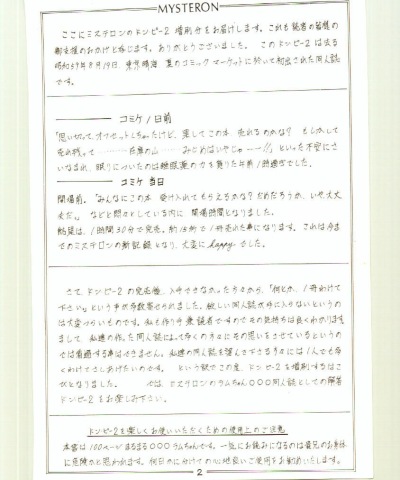 MYSTERON
ここにミステロンのドンピー2 増刷分をお届けします。これも読者の皆様の
御支援のおかげと感じます。ありがとうございました。 このドンピー2は去る
昭和59年8月19日、東京晴海 夏のコミックマーケットに於いて初出された同人誌
です。
コミケ1日前
「思い切って、オフセットしちゃったけど、果してこの本 売れるのかな? もしかして
売れ残って………在庫の山……みじめはいやじゃーー!!」といった不安にさ
いなまれ、眠りについたのは睡眠薬の力を借りた午前1時過ぎでした。
コミケ当日
開場前。「みんなにこの本 受け入れてもらえるかな? だめだろうか、いや大丈
夫だ。」などと悶々としている内に 開場時間となりました。
結果は、1時間30分で完売。約18秒で1冊売れた事になります。これは今ま
でのミステロンの新記録となり、大変にhappyでした。
さて、ドンピー2の完売後、入手できなかった方々から、「何とか、1冊わけて
下さい。」という声が多数寄せられました。欲しい同人誌が手に入らないというの
は大変つらいものです。私も作り手兼読者ですのでその気持ちは良くわかります。
まして、私達の作った同人誌によって多くの方々にその思いをさせているというの
では看過する事はできません。私達の同人誌を望んで下さる方々には1人でも多
くわけてさしあげたいのです。 という訳でこの度、ドンピー2を増刷するはこ
びとなりました。 では、ミステロンのラムちゃん〇〇〇同人誌としての
ドンピー2をお楽しみ下さい。
ドンピー2を楽しくお使いいただくための使用上のご注意
本書は100ページまるまる〇〇〇ラムちゃんです。一気にお読みになるのは貴兄のお身体
に危険かと思われます。何日かに分けての心地良いご使用をお勧めいたします。
2